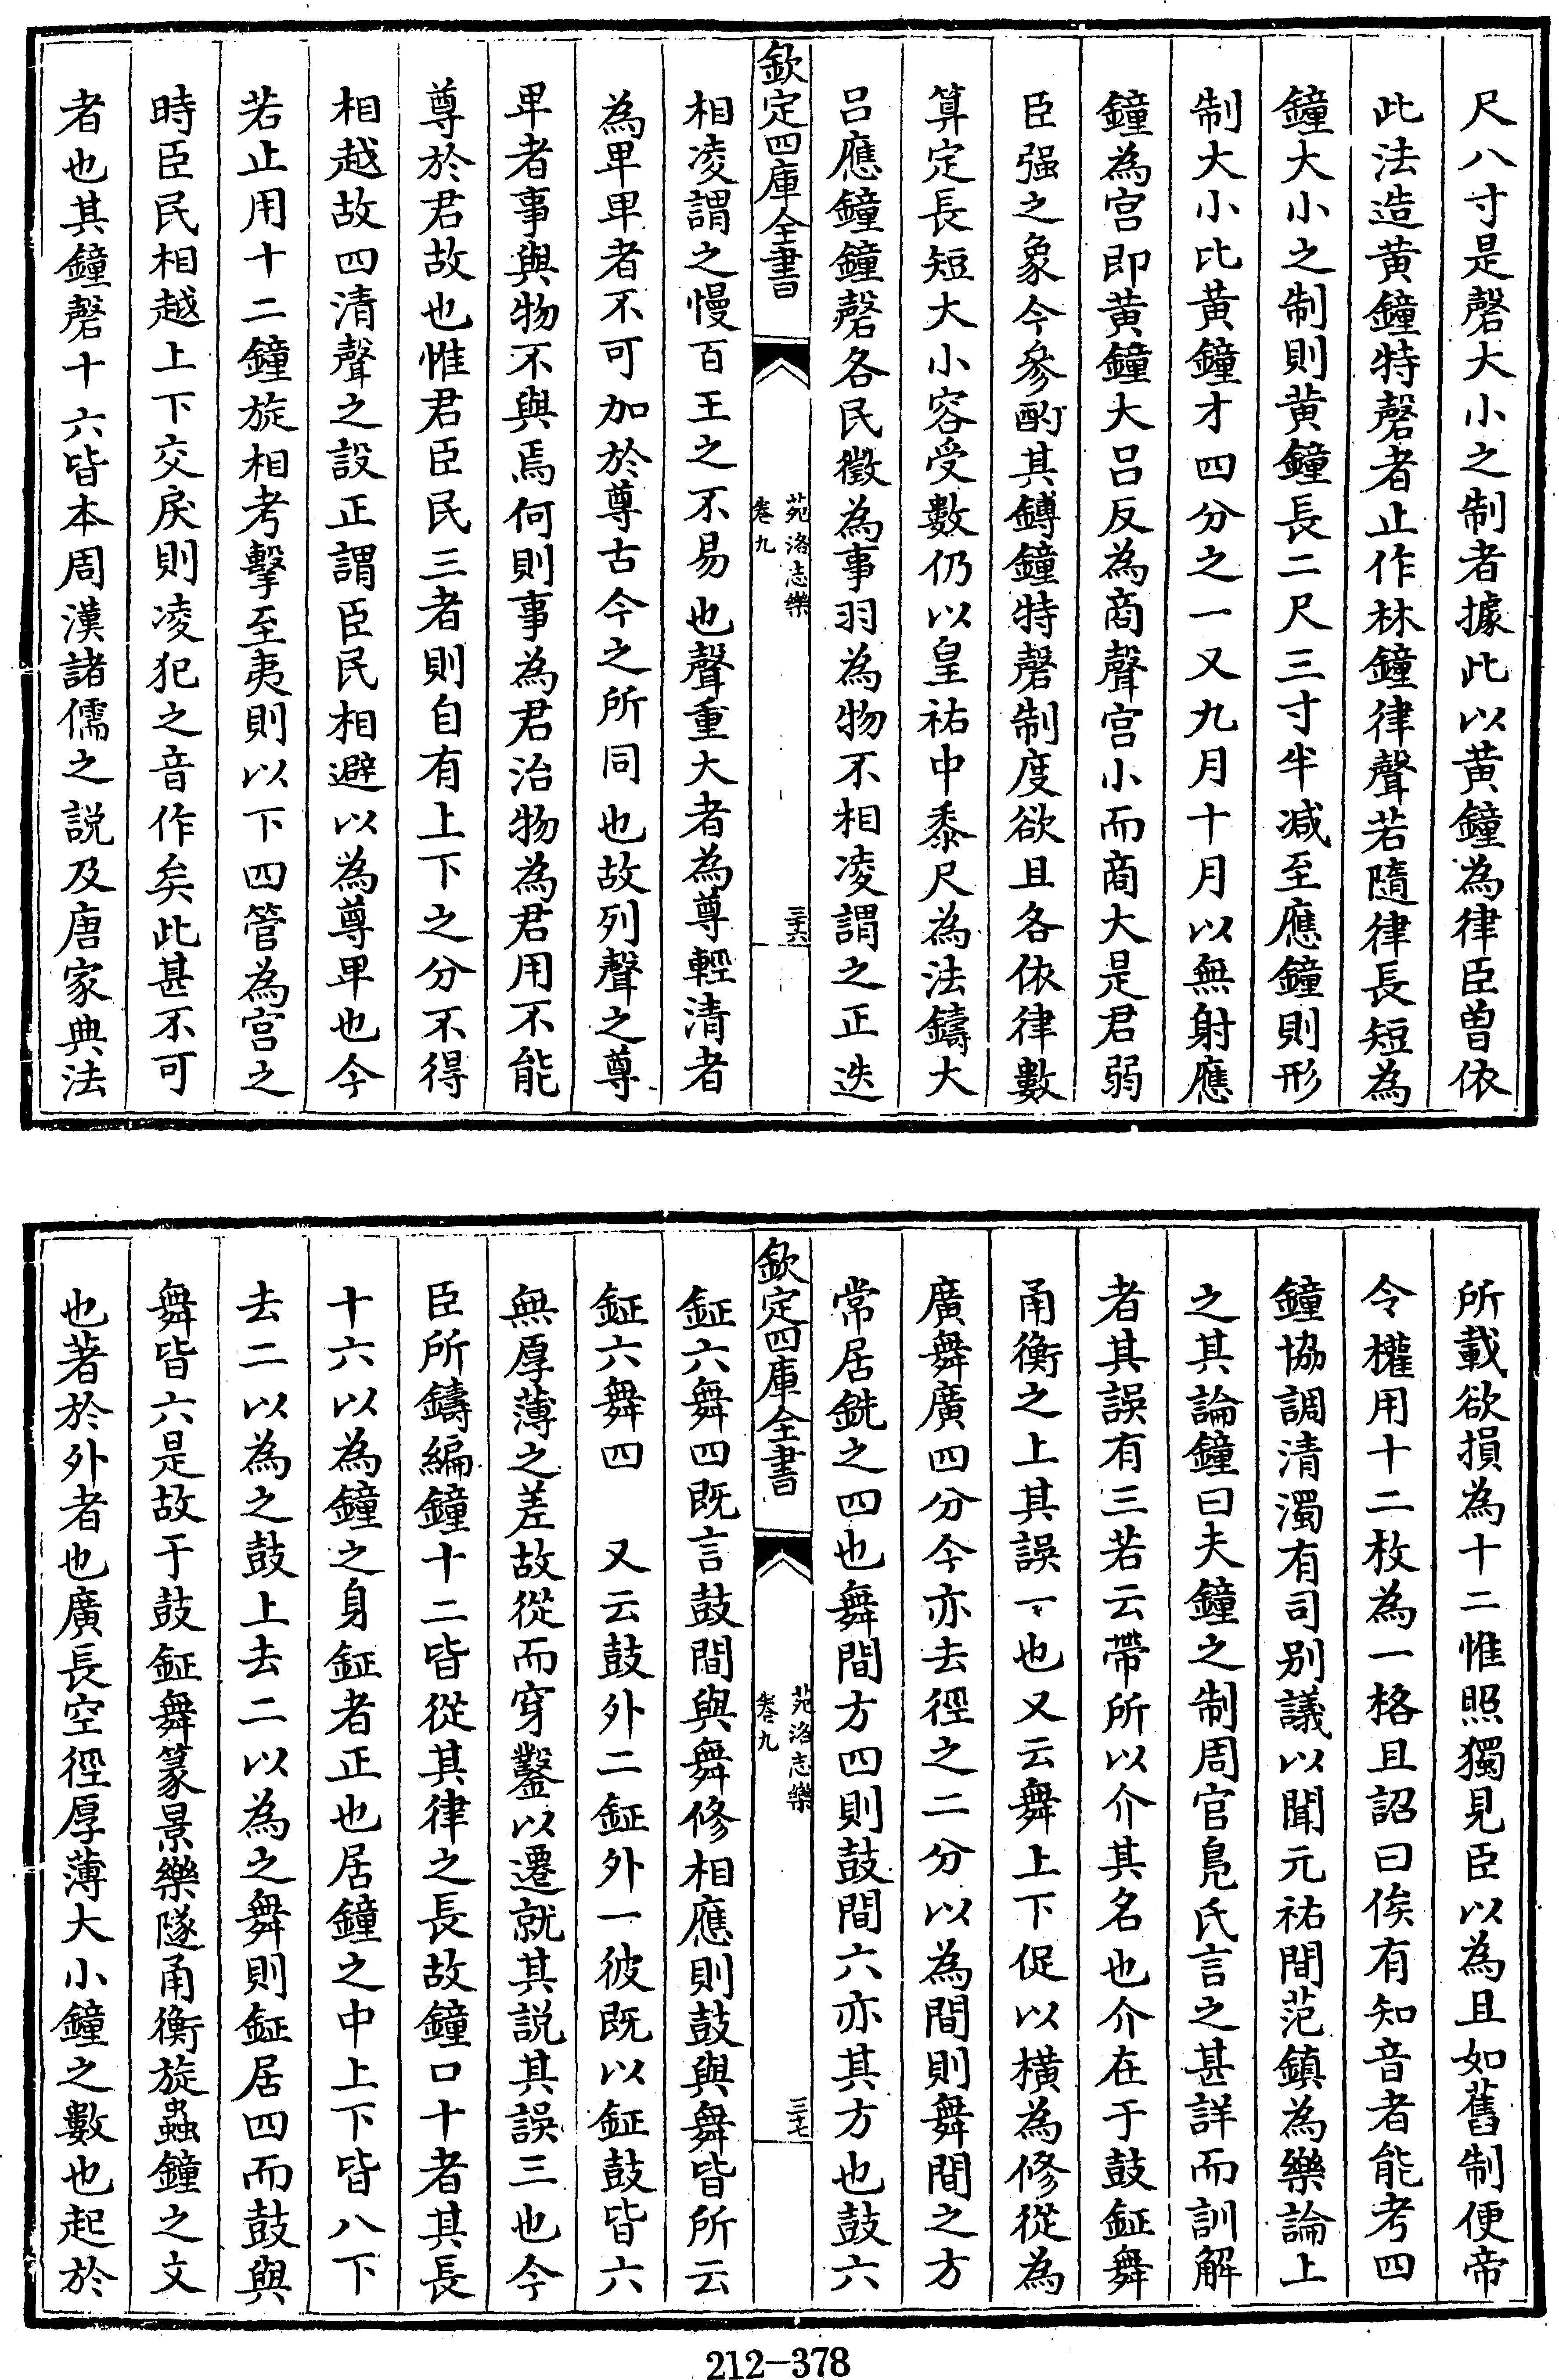 尺八寸是磬大小之制者據此以黄鐘為律臣曽依
此法造黄鐘特磬者止作林鐘律聲若隨律長短為
鐘大小之制則黄鐘長二尺三寸半減至應鐘則形
制大小比黄鐘才四分之一又九月十月以無射應
鐘為宫即黄鐘大吕反為商聲宫小而商大是君弱
臣强之象今參酌其鎛鐘特磬制度欲且各依律數
算定長短大小容受數仍以皇祐中黍尺為法鑄大
吕應鐘鐘磬各民徵為事羽為物不相凌謂之正迭
欽定四庫全書
苑洛志樂
卷九
三六
相凌謂之慢百王之不易也聲重大者為尊輕清者
為卑卑者不可加於尊古今之所同也故列聲之尊
卑者事與物不與焉何則事為君治物為君用不能
尊於君故也惟君臣民三者則自有上下之分不得
相越故四清聲之設正謂臣民相避以為尊卑也今
若止用十二鐘旋相考擊至夷則以下四管為宫之
時臣民相越上下交戾則凌犯之音作矣此甚不可
者也其鐘磬十六皆本周漢諸儒之説及唐家典法
所載欲損為十二惟照獨見臣以為且如舊制便帝
令權用十二枚為一格且詔曰俟有知音者能考四
鐘協調清濁有司别議以聞元祐間范鎮為樂論上
之其論鐘曰夫鐘之制周官鳧氏言之甚詳而訓解
者其誤有三若云帶所以介其名也介在于鼓鉦舞
甬衡之上其誤一也又云舞上下促以横為修從為
廣舞廣四分今亦去徑之二分以為間則舞間之方
常居銑之四也舞間方四則鼓間六亦其方也鼓六
欽定四庫全書
苑洛志樂
卷九
三七
鉦六舞四既言鼓間與舞修相應則鼓與舞皆所云
鉦六舞四 又云鼓外二鉦外一彼既以鉦鼓皆六
無厚薄之差故從而穿鑿以遷就其説其誤三也今
臣所鑄編鐘十二皆從其律之長故鐘口十者其長
十六以為鐘之身鉦者正也居鐘之中上下皆八下
去二以為之鼓上去二以為之舞則鉦居四而鼓與
舞皆六是故于鼓鉦舞篆景樂隧甬衡旋蟲鐘之文
也著於外者也廣長空徑厚薄大小鐘之數也起於
212-378